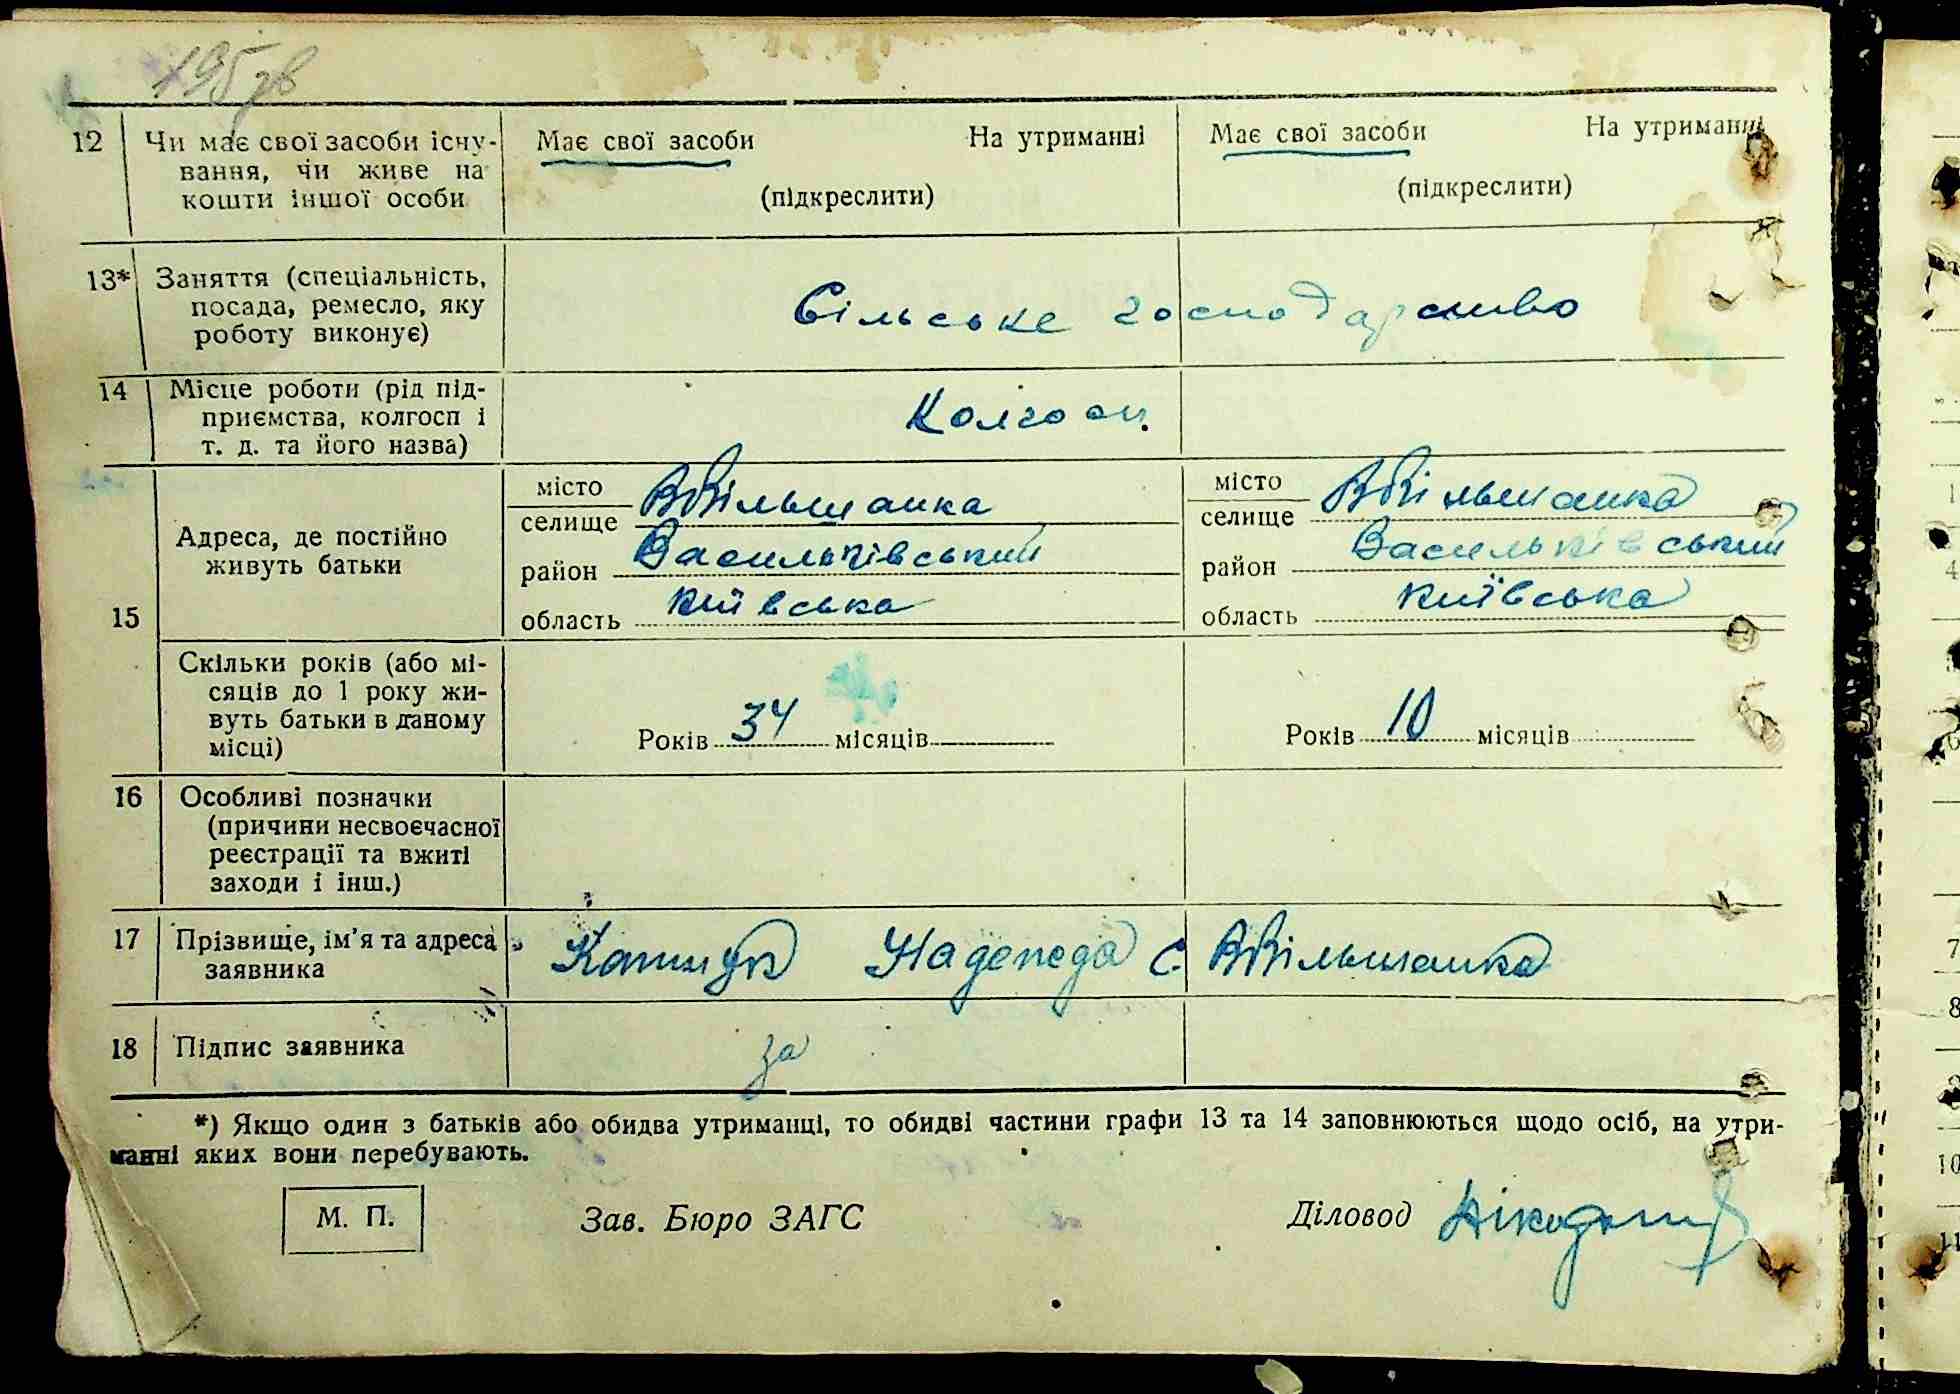 195 зв
12 Чи має свої засоби існу- Має свої засоби На утриманні Має свої засоби На утриманні
вання, чи живе на
кошти іншої особи (підкреслити) (підкреслити)
13* Заняття (спеціальність,
посада, ремесло, яку Сільське господарство
роботу виконує)
14 Місце роботи (рід під-
приємства, колгосп і Колгосп.
т. д. та його назва)
15 Адреса, де постійно
живуть батьки
місто ВВільшанка місто ВВільшанка
селище селище
район Васильківський район Васильківський
область Київська область Київська
Скільки років (або мі-
сяців до 1 року жи-
вуть батьки в даному Років 34 місяців Років 10 місяців
місці)
16 Особливі позначки
(причини несвоєчасної
реєстрації та вжиті
заходи і інш.)
17 Прізвище, ім'я та адреса Надежда с. ВВільшанка
заявника
18 Підпис заявника за
*) Якщо один з батьків або обидва утриманці, то обидві частини графи 13 та 14 заповнюються щодо осіб, на утри-
манні яких вони перебувають.
М. П. Зав. Бюро ЗАГС Діловод